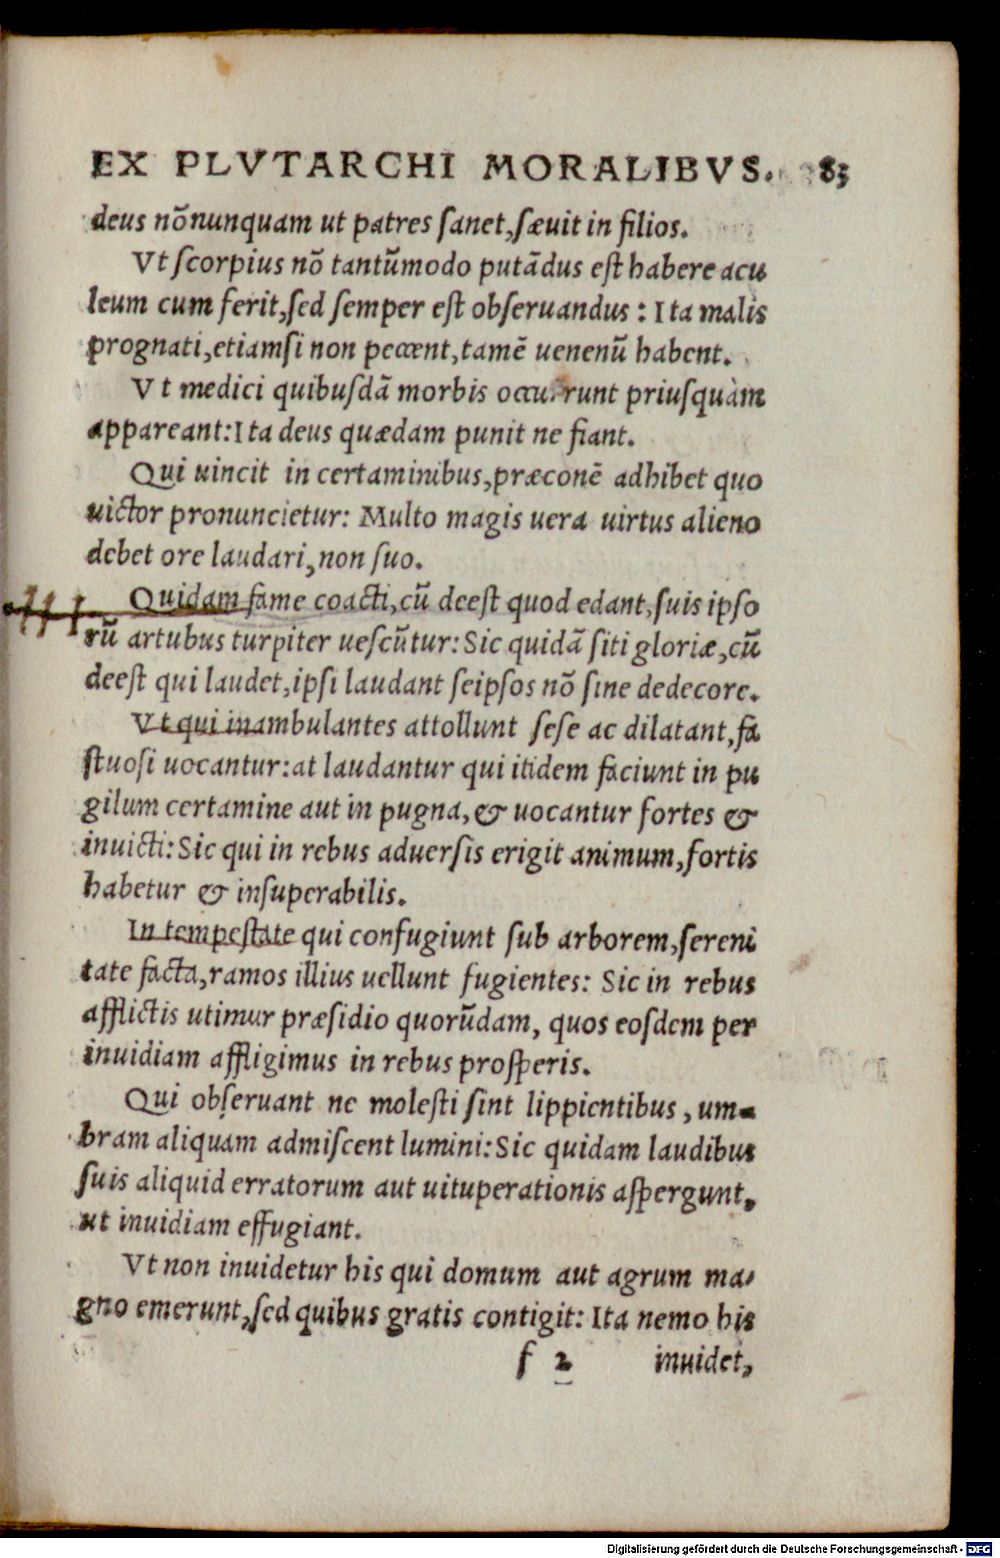 EX PLVTARCHI MORALIBVS. 83
deus nõnunquam ut patres ſanet,ſæuit in filios.
Vt ſcorpius nõ tantũmodo putãdus eſt habere acu
leum cum ferit,ſed ſemper eſt obſeruandus : Ita malis
prognati,etiamſi non peccent,tamẽ uenenũ habent.
Vt medici quibuſdã morbis occurrunt priuſquàm
appareant:Ita deus quædam punit ne fiant.
Qui uincit in certaminibus,præconẽ adhibet quo
uictor pronuncietur: Multo magis uera uirtus alieno
debet ore laudari,non ſuo.
Quidam fame coacti,cũ deeſt quod edant,ſuis ipſo
rũ artubus turpiter ueſcũtur: Sic quidã ſiti gloriæ,cũ
deeſt qui laudet,ipſi laudant ſeipſos nõ ſine dedecore.
Vt qui inambulantes attollunt ſeſe ac dilatant,fa
ſtuoſi uocantur:at laudantur qui itidem faciunt in pu
gilum certamine aut in pugna,& uocantur fortes &
inuicti: Sic qui in rebus aduerſis erigit animum,fortis
habetur & inſuperabilis.
In tempeſtate qui confugiunt ſub arborem,ſereni
tate facta,ramos illius uellunt fugientes: Sic in rebus
afflictis utimur præſidio quorũdam, quos eoſdem per
inuidiam affligimus in rebus proſperis.
Qui obſeruant ne moleſti ſint lippientibus , um-
bram aliquam admiſcent lumini: Sic quidam laudibus
ſuis aliquid erratorum aut uituperationis aſpergunt,
ut inuidiam effugiant.
Vt non inuidetur his qui domum aut agrum ma-
gno emerunt,ſed quibus gratis contigit: Ita nemo his
f 2 inuidet,
Digitalisierung gefördert durch die Deutsche Forschungsgemeinschaft - DFG